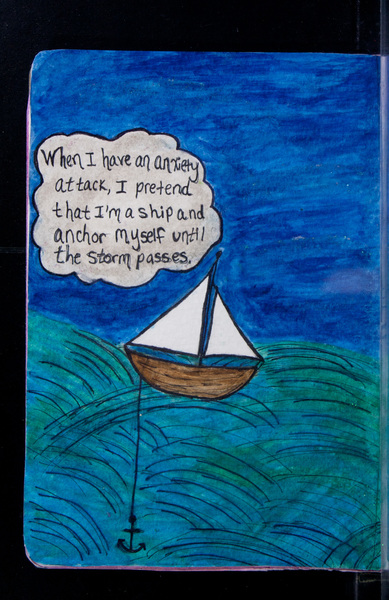 When I have an anxiety
attack, I pretend
that I'm a ship and
anchor myself until
the storm passes.